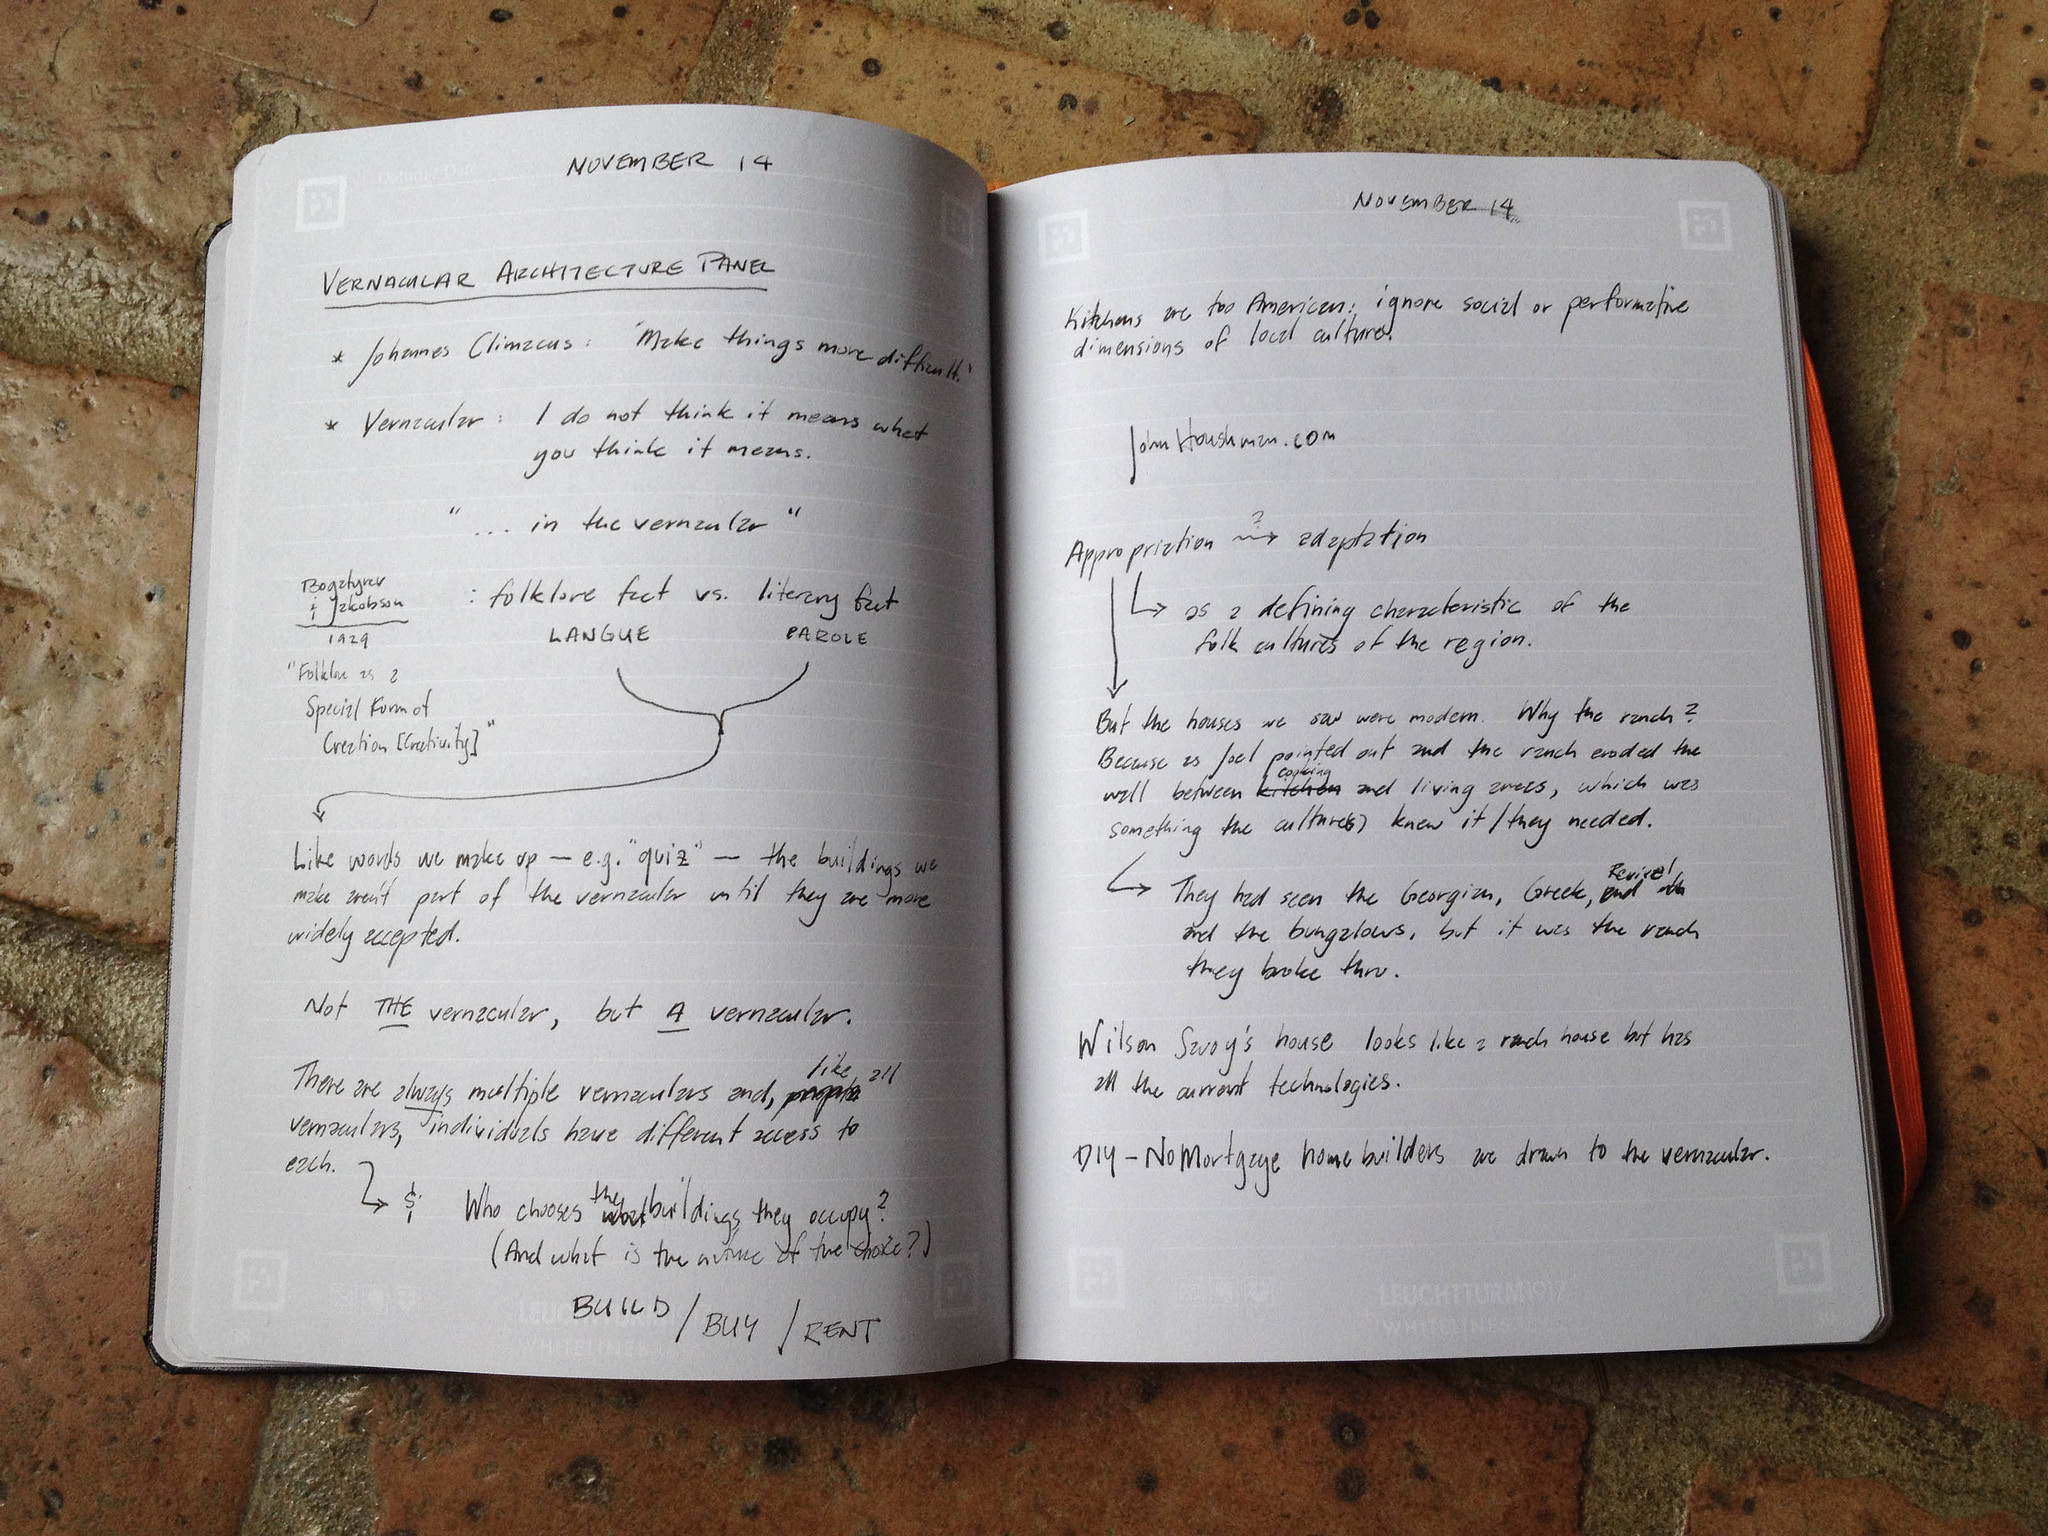 NOVEMBER 14
VERNACULAR ARCHITECTURE PANEL
* Johannes Climacus: "Make things more difficult."
* Vernacular: I do not think it means what
you think it means.
"... in the vernacular"
Bogatyrev
& Jakobson
1929
"Folklore as a
Special Form of
Creation [Creativity]"
: folklore fact vs. literary fact
LANGUE PAROLE
Like words we make up — e.g. "quiz" — the buildings we
make aren't part of the vernacular until they are more
widely accepted.
Not THE vernacular, but A vernacular.
There are always multiple vernaculars and, people like all
vernaculars, individuals have different access to
each.
& Who chooses what the buildings they occupy?
(And what is the nature of the choice?)
BUILD / BUY / RENT
LEUCHTTURM
WHITELINES
38
NOVEMBER 14
Kitchens are too American: ignore social or performative
dimensions of local culture.
JohnHoushman.com
Appropriation ? → adaptation
as a defining characteristic of the
folk cultures of the region.
But the houses we saw were modern. Why the ranch?
Because as Joel pointed out and the ranch eroded the
wall between kitchen cooking and living areas, which was
something the culture(s) knew it/they needed.
They had seen the Georgian, Greek, and Revival
and the bungalows, but it was the ranch
they broke thru.
Wilson Savoy's house looks like a ranch house but has
all the current technologies.
DIY - NoMortgage home builders are drawn to the vernacular.
LEUCHTTURM1917
WHITELINES